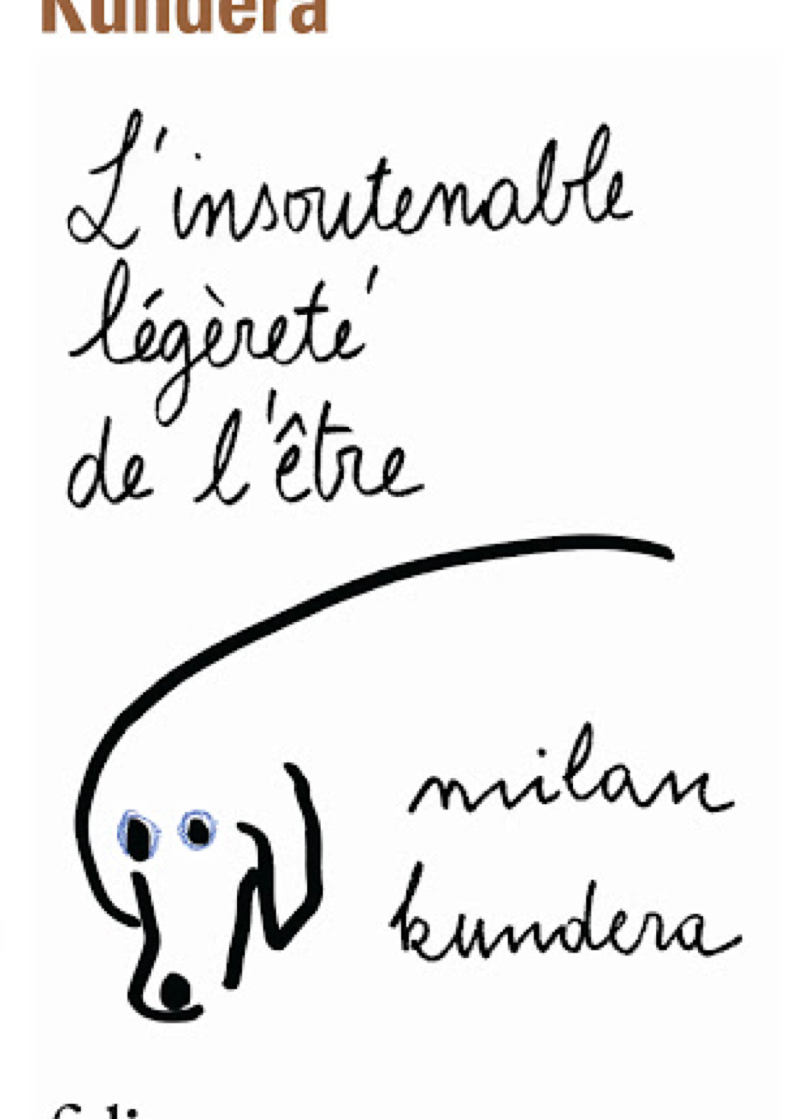 Kundera
L'insoutenable
légèreté
de l'être
milan
kundera
folio